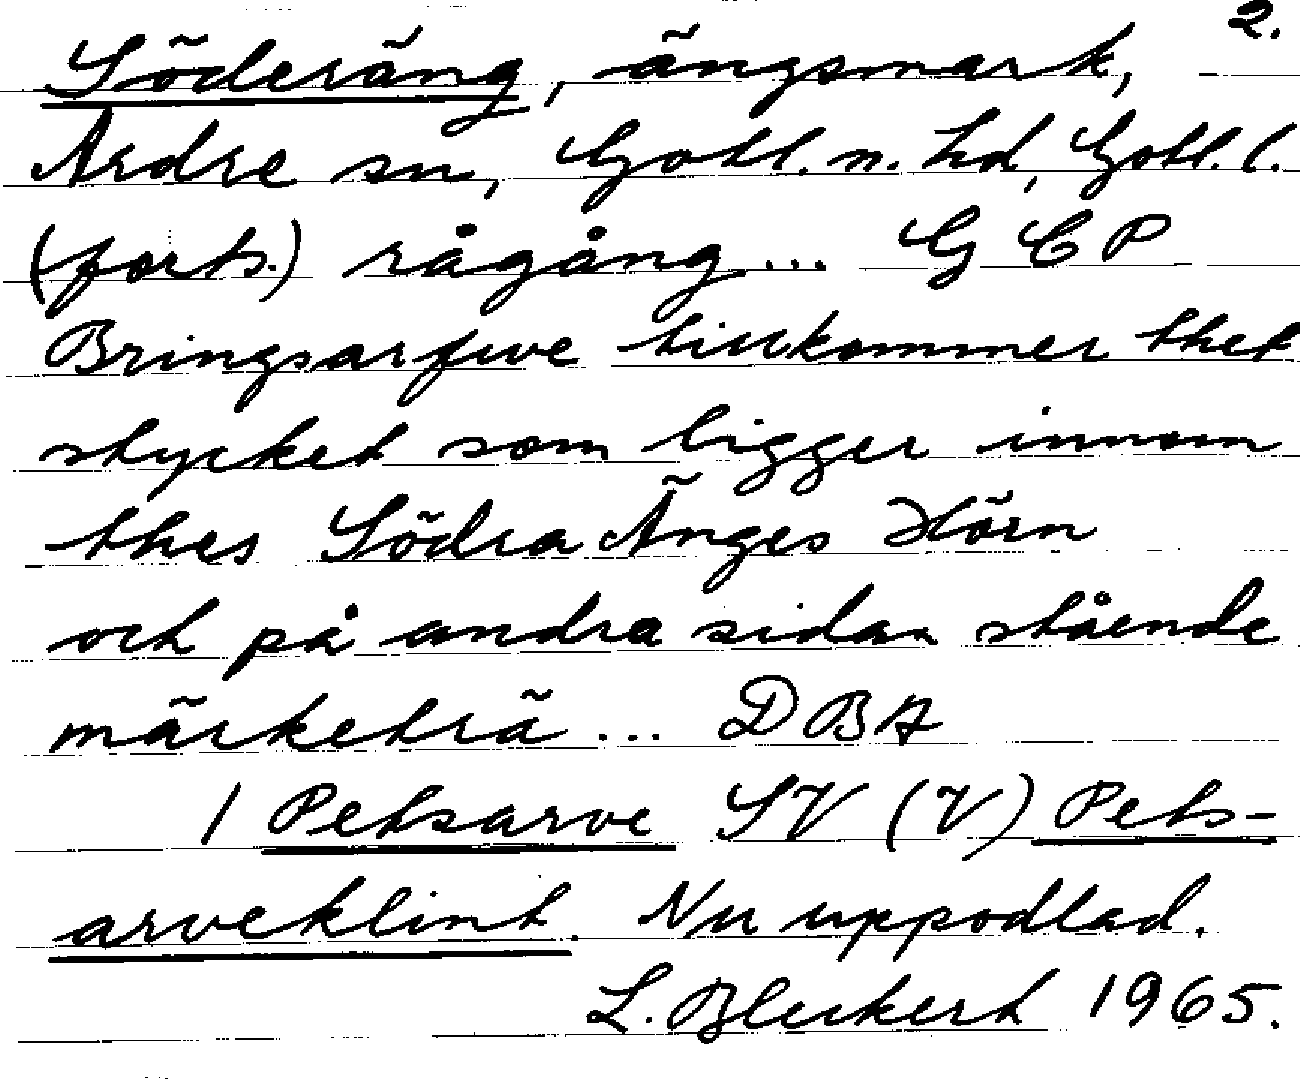 2.
Söderäng, ängsmark,
Ardre sn, Gotl. n. hd, Gotl. l.
(forts.) rågång... G C P
Bringsarfwe tillkommer thet
stycket som ligger innom
thes Södra Änges Hörn
och på andra sidan stående
märketrä ... D B A
1 Petsarve SV (V) Pets-
arveklint. Nu uppodlad.
L. Bleckert 1965.